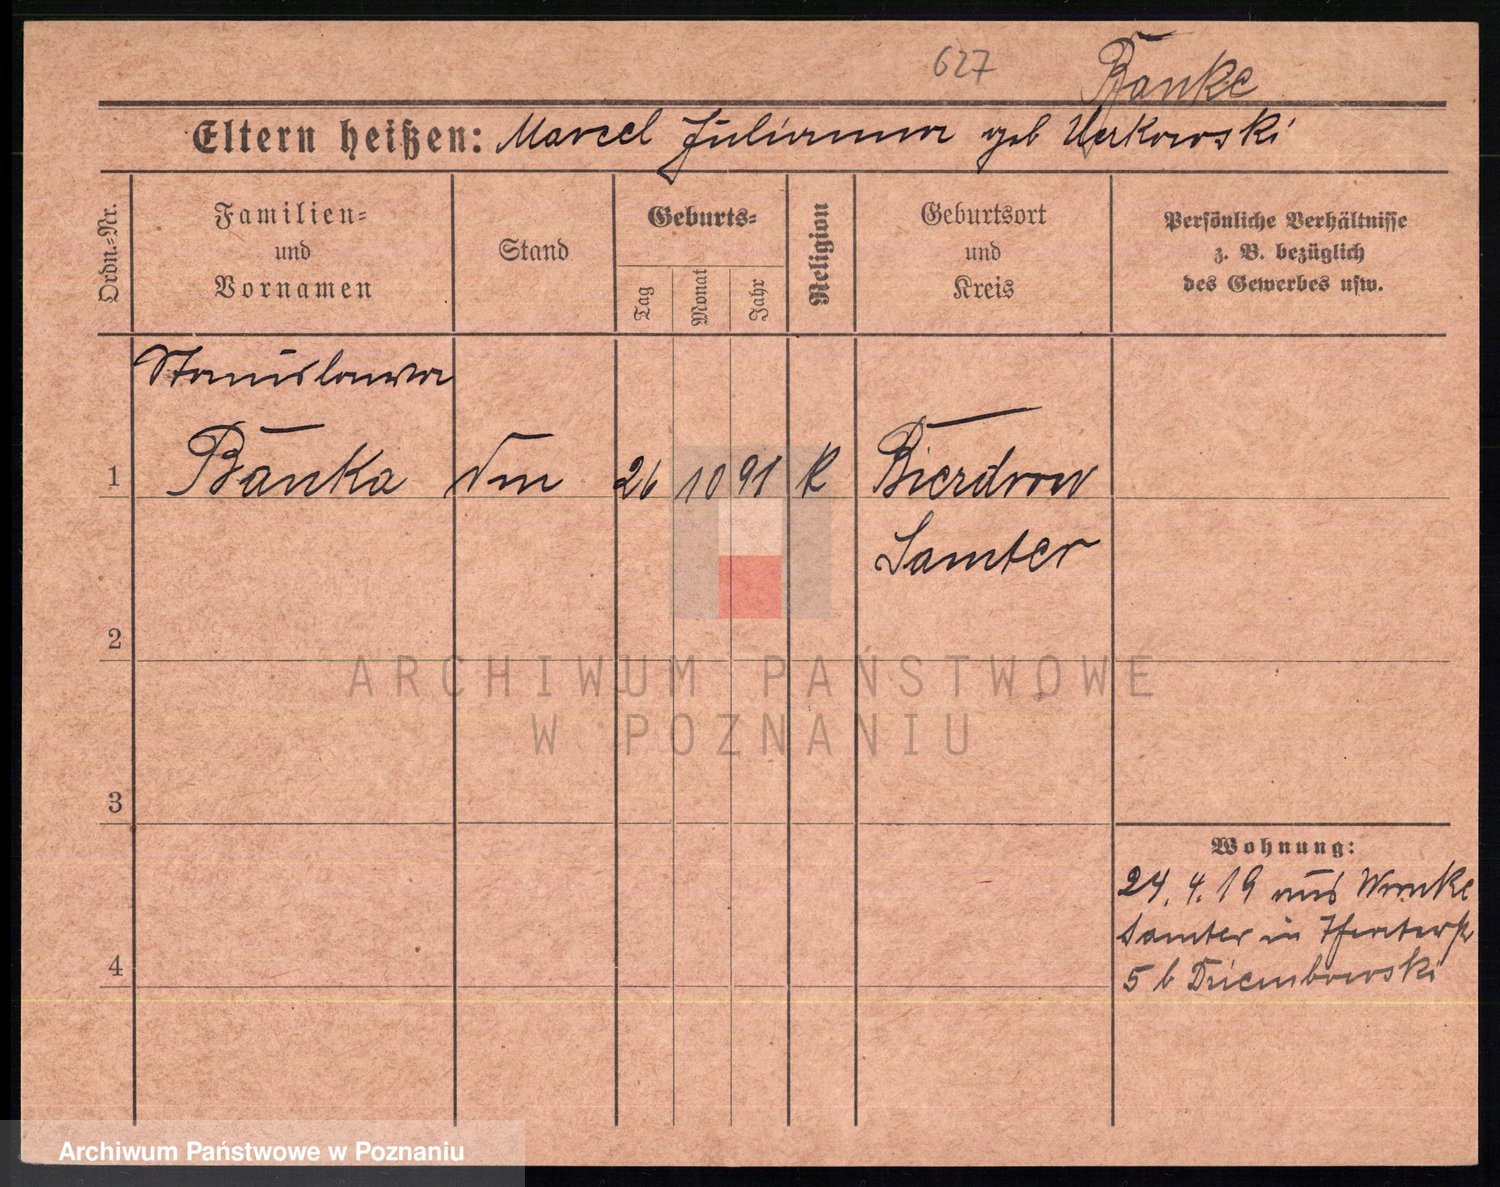 627 Banke
Eltern heißen: Marcel Julianna geb Urkowski
Ordn.=Nr.
Familien=
und
Vornamen
Stand
Geburts=
Tag
Monat
Jahr
Religion
Geburtsort
und
Kreis
Persönliche Verhältnisse
z. B. bezüglich
des Gewerbes usw.
Stanislawa
1 Banka 26 10 91 K Bierdrow
Samter
2
ARCHIWUM PAŃSTWOWE
W POZNANIU
3
Wohnung:
24. 4. 19 aus Wronke
Samter in Theaterstr
4
5 b Dziembowski
Archiwum Państwowe w Poznaniu